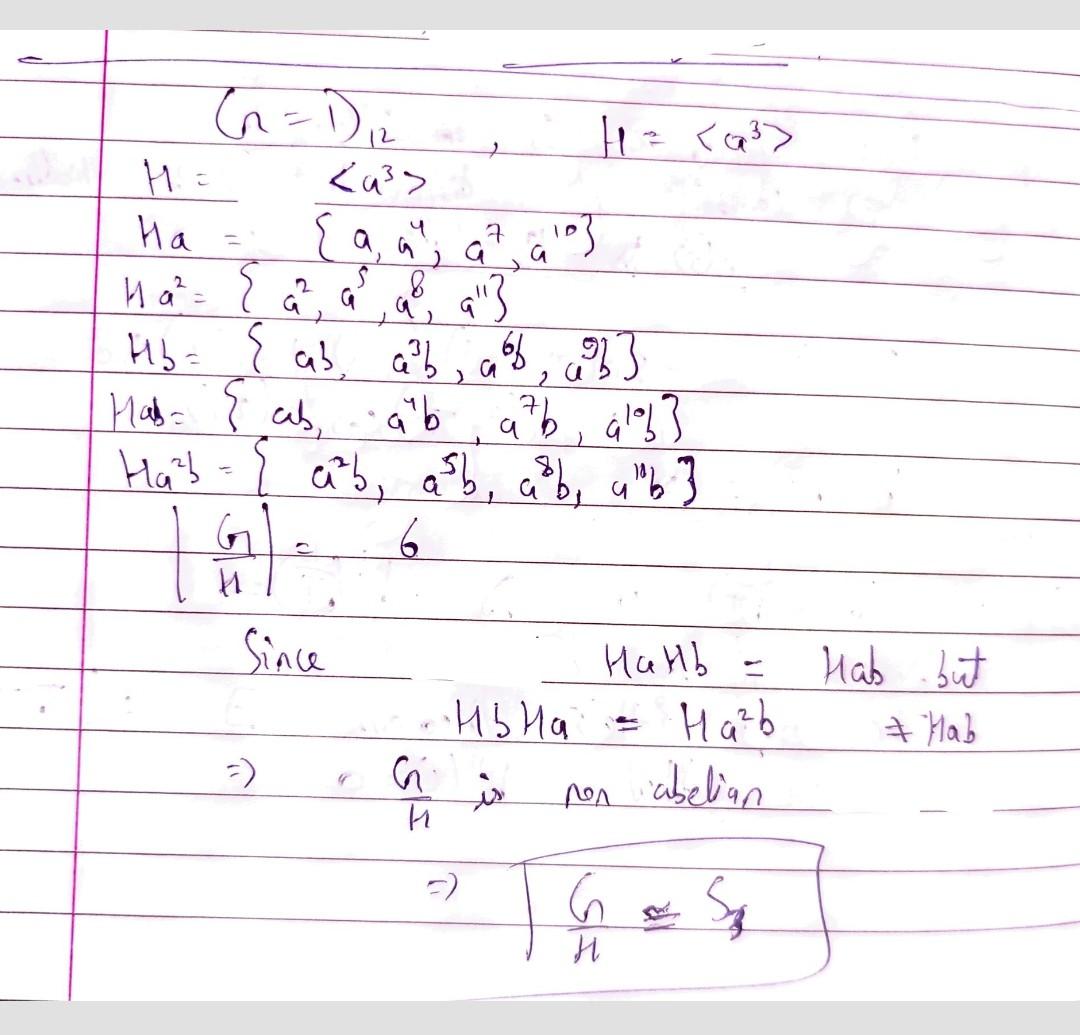 G = D₁₂ , H = <a³>
H = <a³>
Ha = { a, a⁴, a⁷, a¹⁰}
Ha² = { a², a⁵, a⁸, a¹¹}
Hb = { ab, a³b, a⁶b, a⁹b}
Hab = { ab, a⁴b, a⁷b, a¹⁰b}
Ha²b = { a²b, a⁵b, a⁸b, a¹¹b}
|G/H| = 6
Since HaHb = Hab but
HbHa = Ha²b ≠ Hab
=) G/H is non abelian
=) G/H ≅ S₃